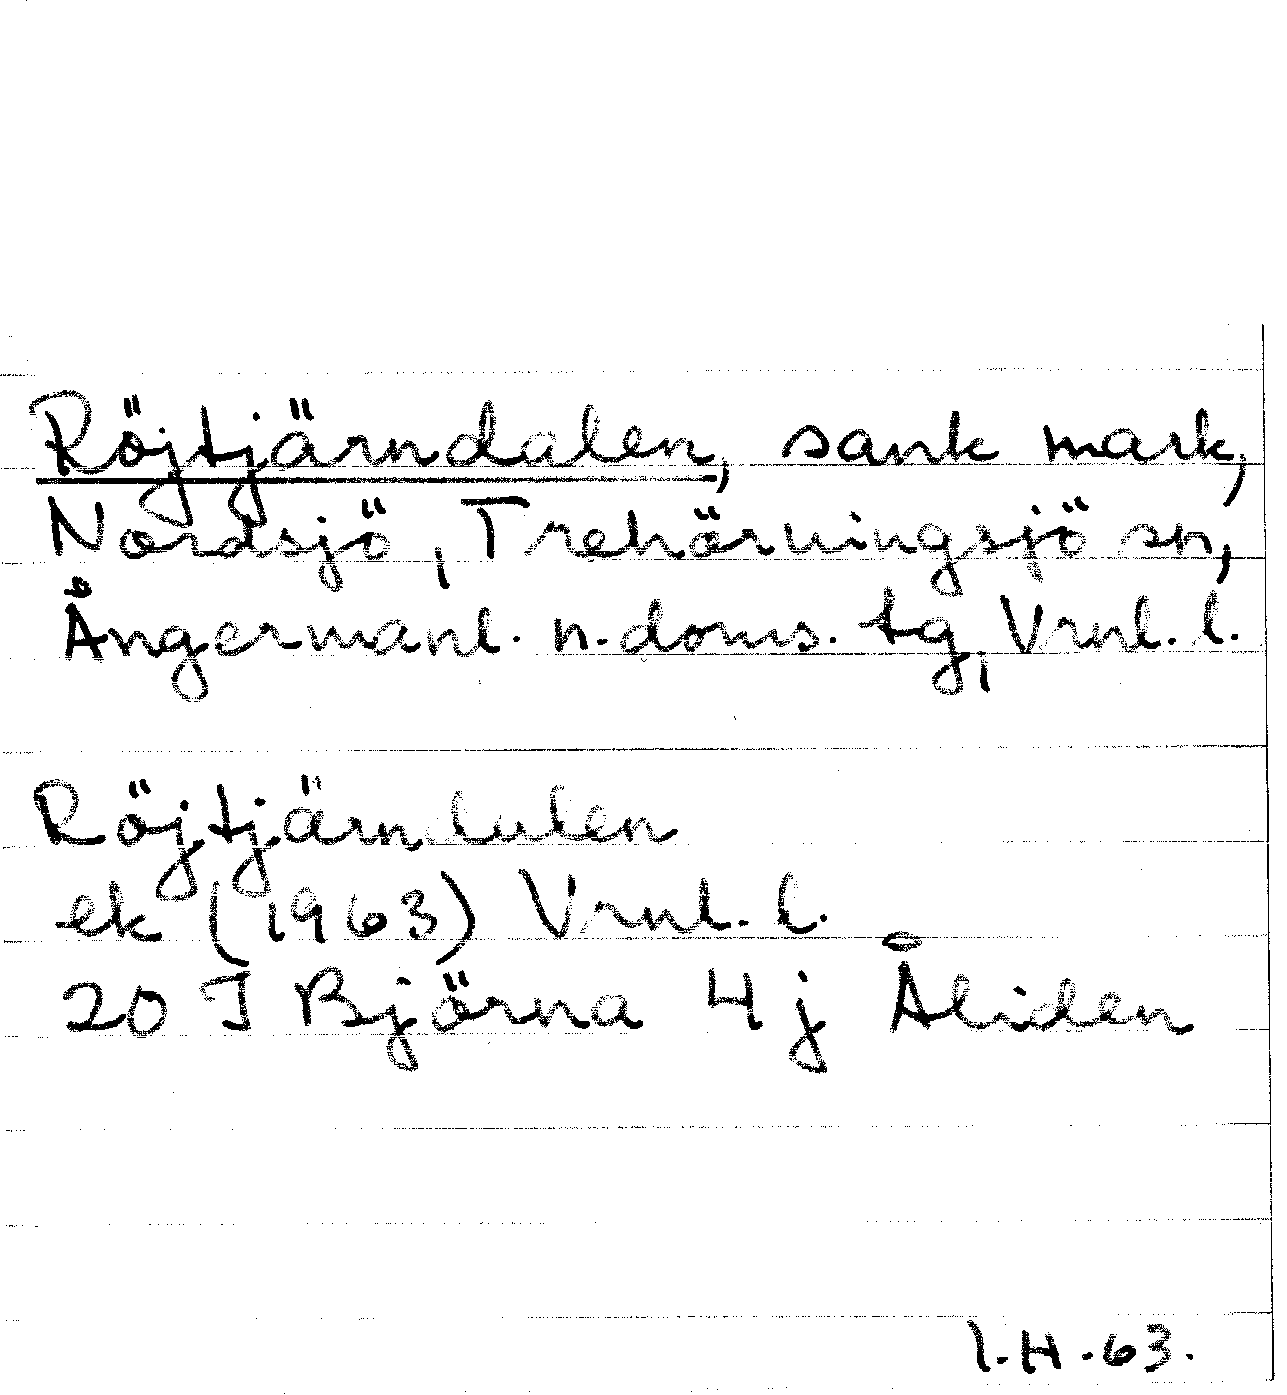 Röjtjärndalen, sank mark,
Nordsjö, Trehörningsjö sn,
Ångermanl. n. doms. tg, Vrnl. l.
Röjtjärndalen
ek (1963) Vrnl. l.
20 J Björna 4 j Åliden
I.H.63.